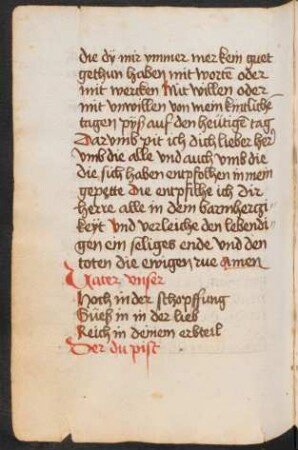 die dÿ mir ymmer mer kein guet
gethun haben mit wortē oder
mit wercken Mit willen oder
mit vnwillen von mein kintliche
tagen pyß auf den heütigē tag
Darvmb pit ich dich lieber her
vmb die alle vnd auch vmb die
die sich haben entpfolhen in mein
gepette Die entpfilhe ich dir
herre alle in dem barmhertzi
keyt Vnd verleiche den lebendi
gen ein seliges ende vnd den
toten die ewigen rue Amen
Vater vnser
Hoch in der schopffung
Süeß in in der lieb
Reich in deinem erbteil
Der du pist